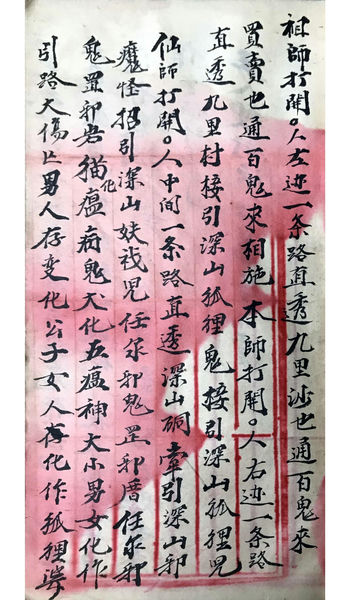 祖師打開。人左边一条路直透九里沙也通百鬼來
買賣也通百鬼來相施本師打開。人右边一条路
直透九里村接引深山狐狸鬼接引深山狐狸児
仙師打開。人中间一条路直透深山硐牽引深山邪
魔怪招引深山妖児任尔邪鬼罡邪厝任尔邪
鬼罡邪君猫化瘟病鬼犬化五瘟神大小男女化作
引路大傷亡男人存变化公子女人存化作狐狸